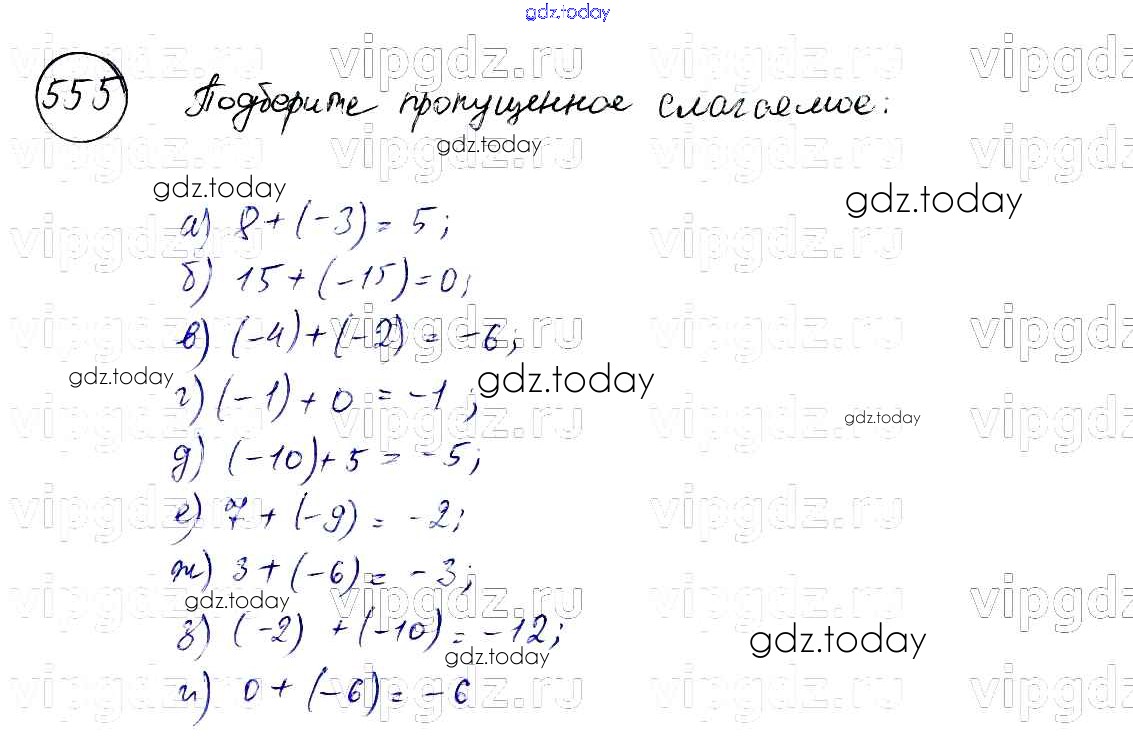 gdz.today
555 Подберите пропущенное слагаемое:
gdz.today
gdz.today
gdz.today
а) 8 + (-3) = 5;
б) 15 + (-15) = 0;
в) (-4) + (-2) = -6;
gdz.today
gdz.today
г) (-1) + 0 = -1;
gdz.today
д) (-10) + 5 = -5;
е) 7 + (-9) = -2;
ж) 3 + (-6) = -3;
gdz.today
з) (-2) + (-10) = -12;
gdz.today
gdz.today
и) 0 + (-6) = -6
vipgdz.ru vipgdz.ru vipgdz.ru vipgdz.ru
vipgdz.ru vipgdz.ru vipgdz.ru vipgdz.ru
vipgdz.ru vipgdz.ru vipgdz.ru vipgdz.ru
vipgdz.ru vipgdz.ru vipgdz.ru vipgdz.ru
vipgdz.ru vipgdz.ru vipgdz.ru vipgdz.ru
vipgdz.ru vipgdz.ru vipgdz.ru vipgdz.ru
vipgdz.ru vipgdz.ru vipgdz.ru vipgdz.ru
vipgdz.ru vipgdz.ru vipgdz.ru vipgdz.ru